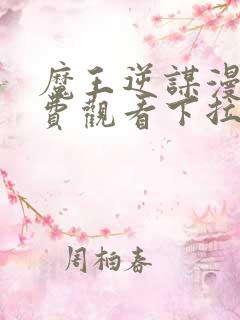 魔王逆謀漫
費觀看下拉
周柏春